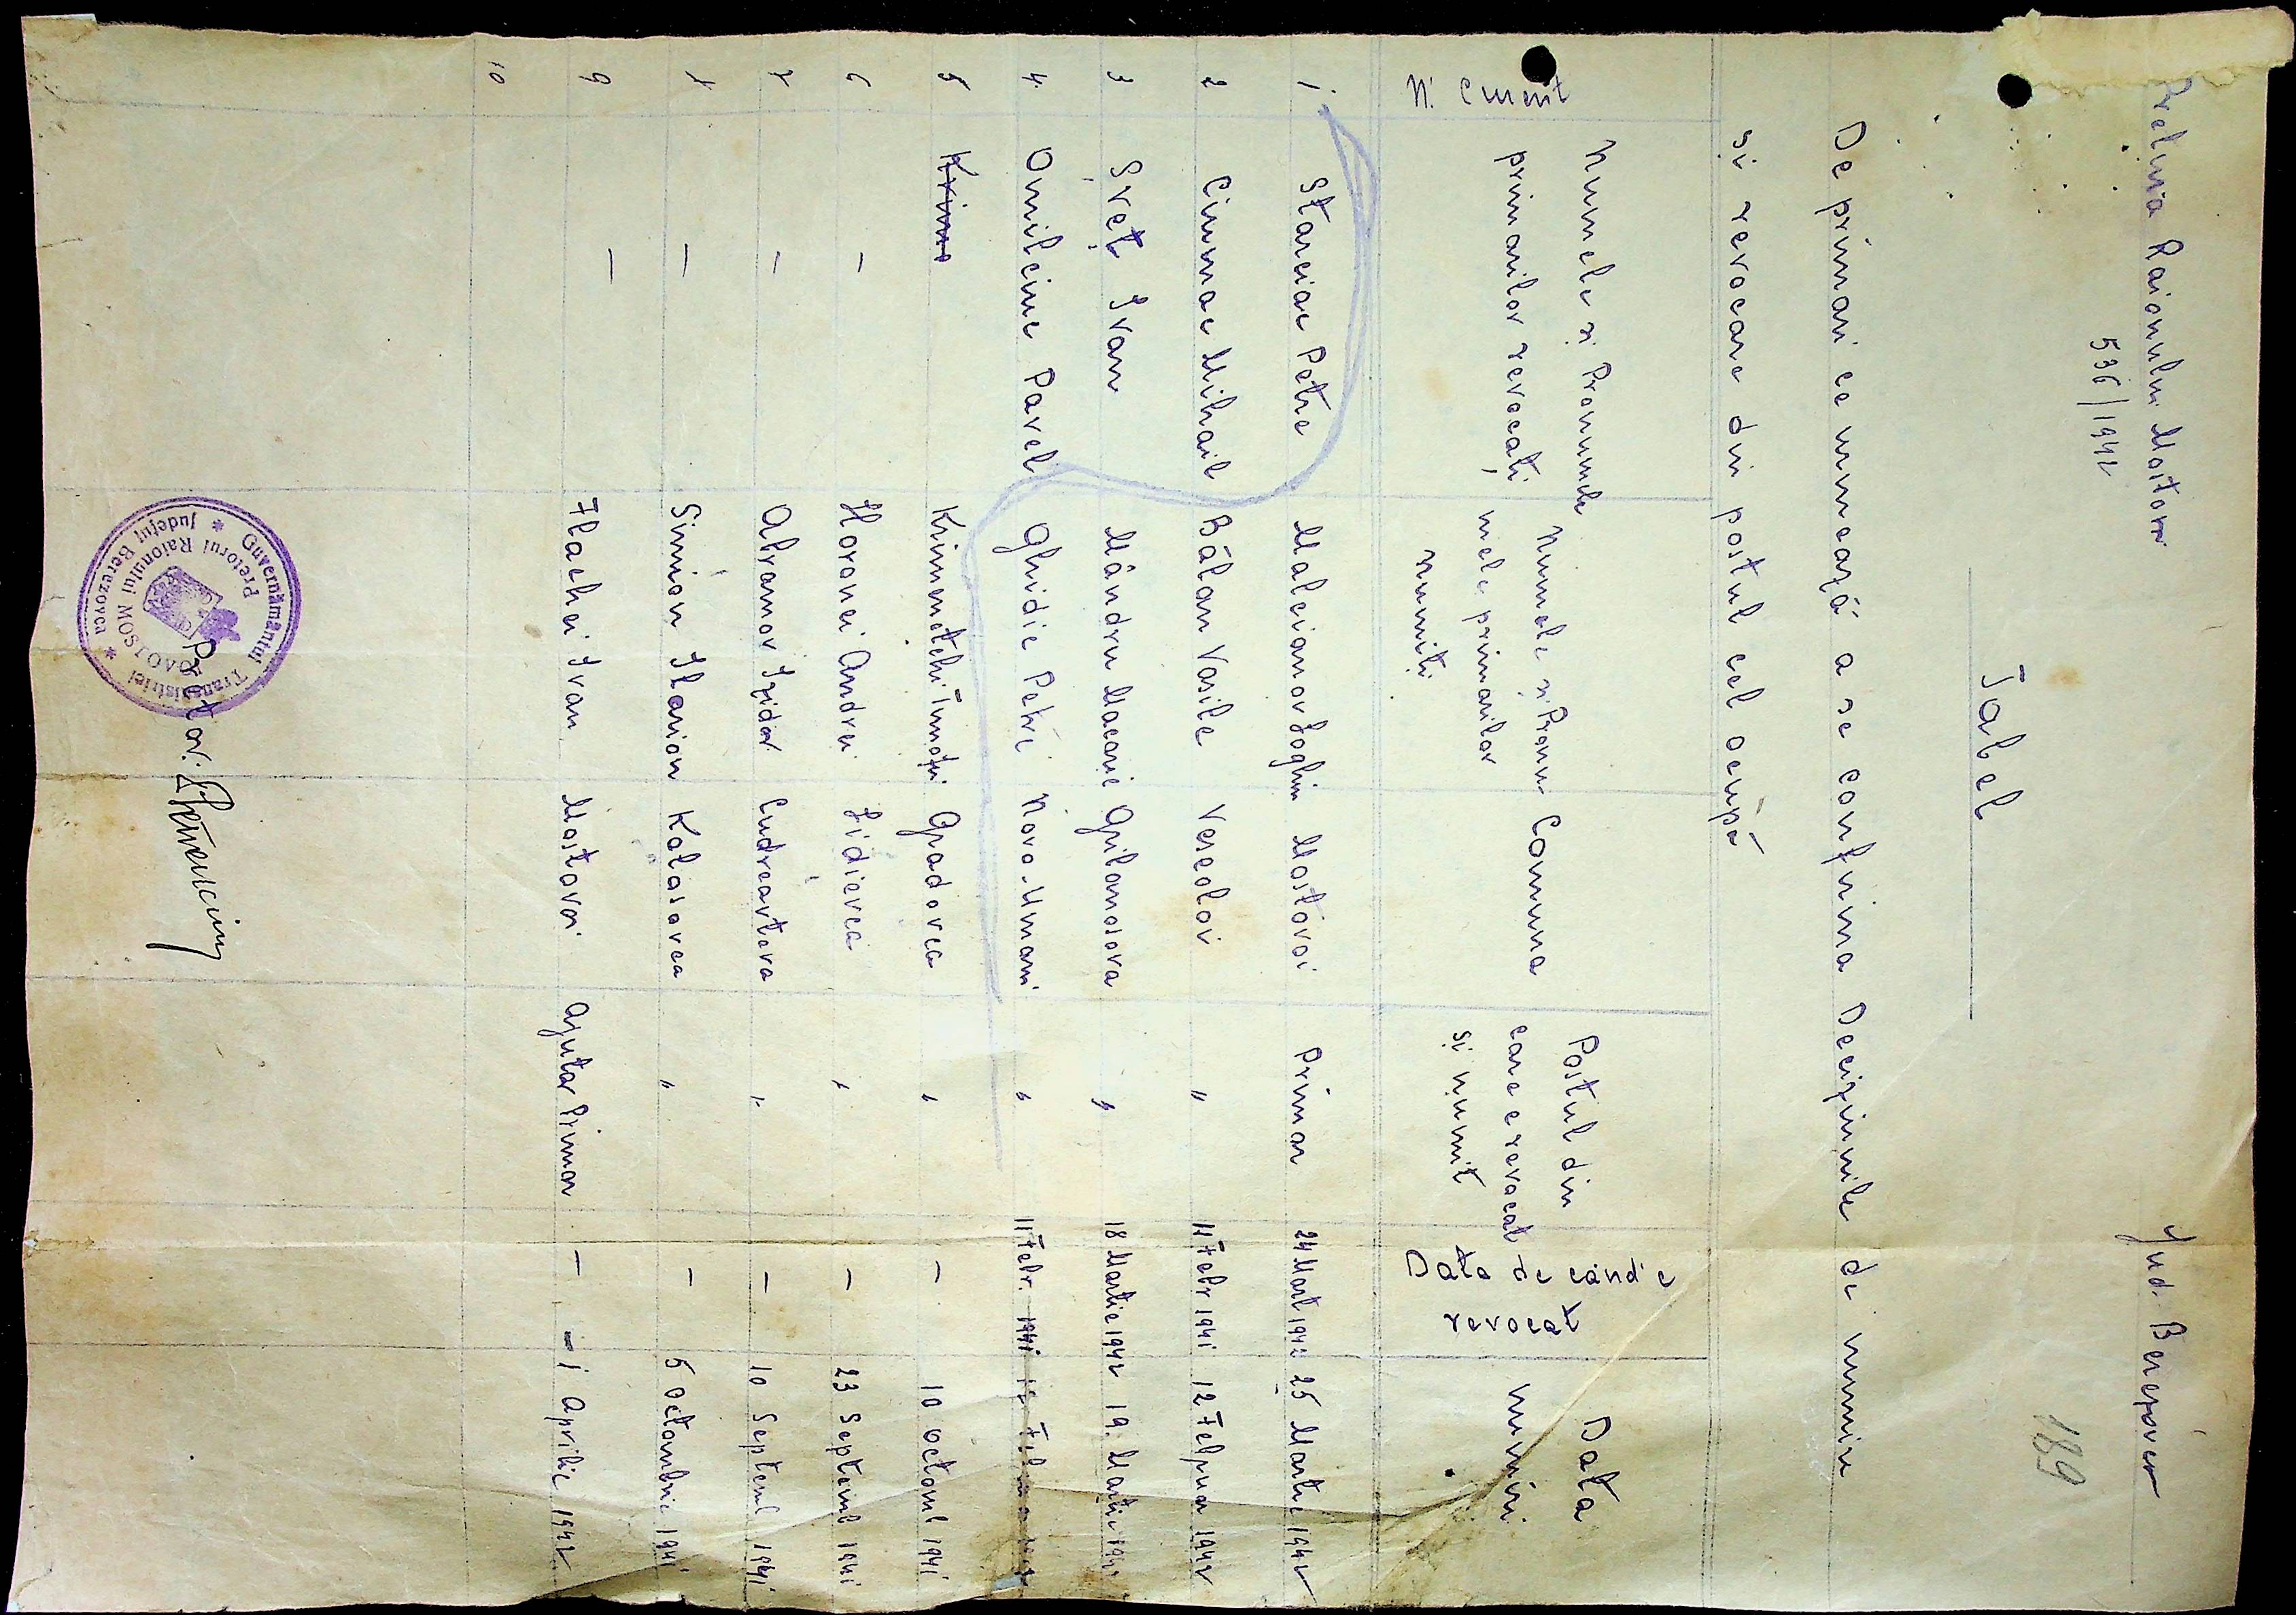 Pretura Raionului Mostovoi Jud. Berezovca
536/1942
189
Tabel
De primari ce urmează a se confirma Deciziunile de numire
și revocare din postul cel ocupă
N: Curent | Numele și Pronumele primarilor revocați | Numele și Pronumele primarilor numiți | Comuna | Postul din care e revocat și numit | Data de când e revocat | Data numiri
1. Starciac Petre Malcianov Loghin Mostovoi Primar 24 Mart 1942 25 Martie 1942
2 Ciumac Mihail Bălan Vasile Veseloi " 11 Febr 1941 12 Februar 1942
3 Sveț Ivan Mândru Macarie Grilanosova " 18 Martie 1942 19. Martie 1942
4. Omilcine Pavel Ghidic Petre Novo-Umani " 11 Febr. 1941
5 Krimenetchi Timofii Gradovca " — 10 Octomb 1941
6 — Horonei Andrei Lidievca " — 23 Septemb 1941
7 — Abramov Izidor Cudreavteva " — 10 Septemb 1941
8 — Simion Ilarion Kolosovca " — 5 Octombrie 1941
9 — Flachei Ivan Mostovoi Ajutor Primar — — 1 Aprilie 1942
10
Pretor:
Guvernământul Transnistriei
Județul Berezovca
Pretorul Raionului MOSTOVOI